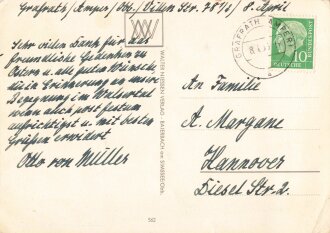 Grafrath / Amper / Obb. Villen Str. 78 1/2 / 8. April
Sehr vielen Dank für das
freundliche Gedenken zu
Ostern u. alle guten Wünsche,
die in Erinnerung an unsere
Begegnung im
wenn auch post festum
aufrichtigst u. mit besten
Grüßen erwidert
Otto von Müller
WALTER NEISSEN VERLAG
BAIERBRACH am STARNBG. Obb.
562
GRAFRATH (AMPER)
8.4.5
a
DEUTSCHE
10
An Familie
A. Margane
Hannover
Dieset Str. 2.